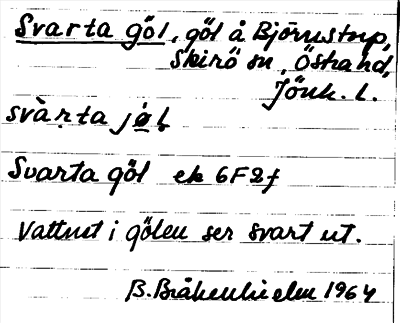 Svarta göl, göl å Björnstorp,
Skirö sn, Östra hd,
Jönk. l.
svàrta jö̀l
Svarta göl ek 6F2f
Vattnet i gölen ser svart ut.
B. Bråkenhielm 1964